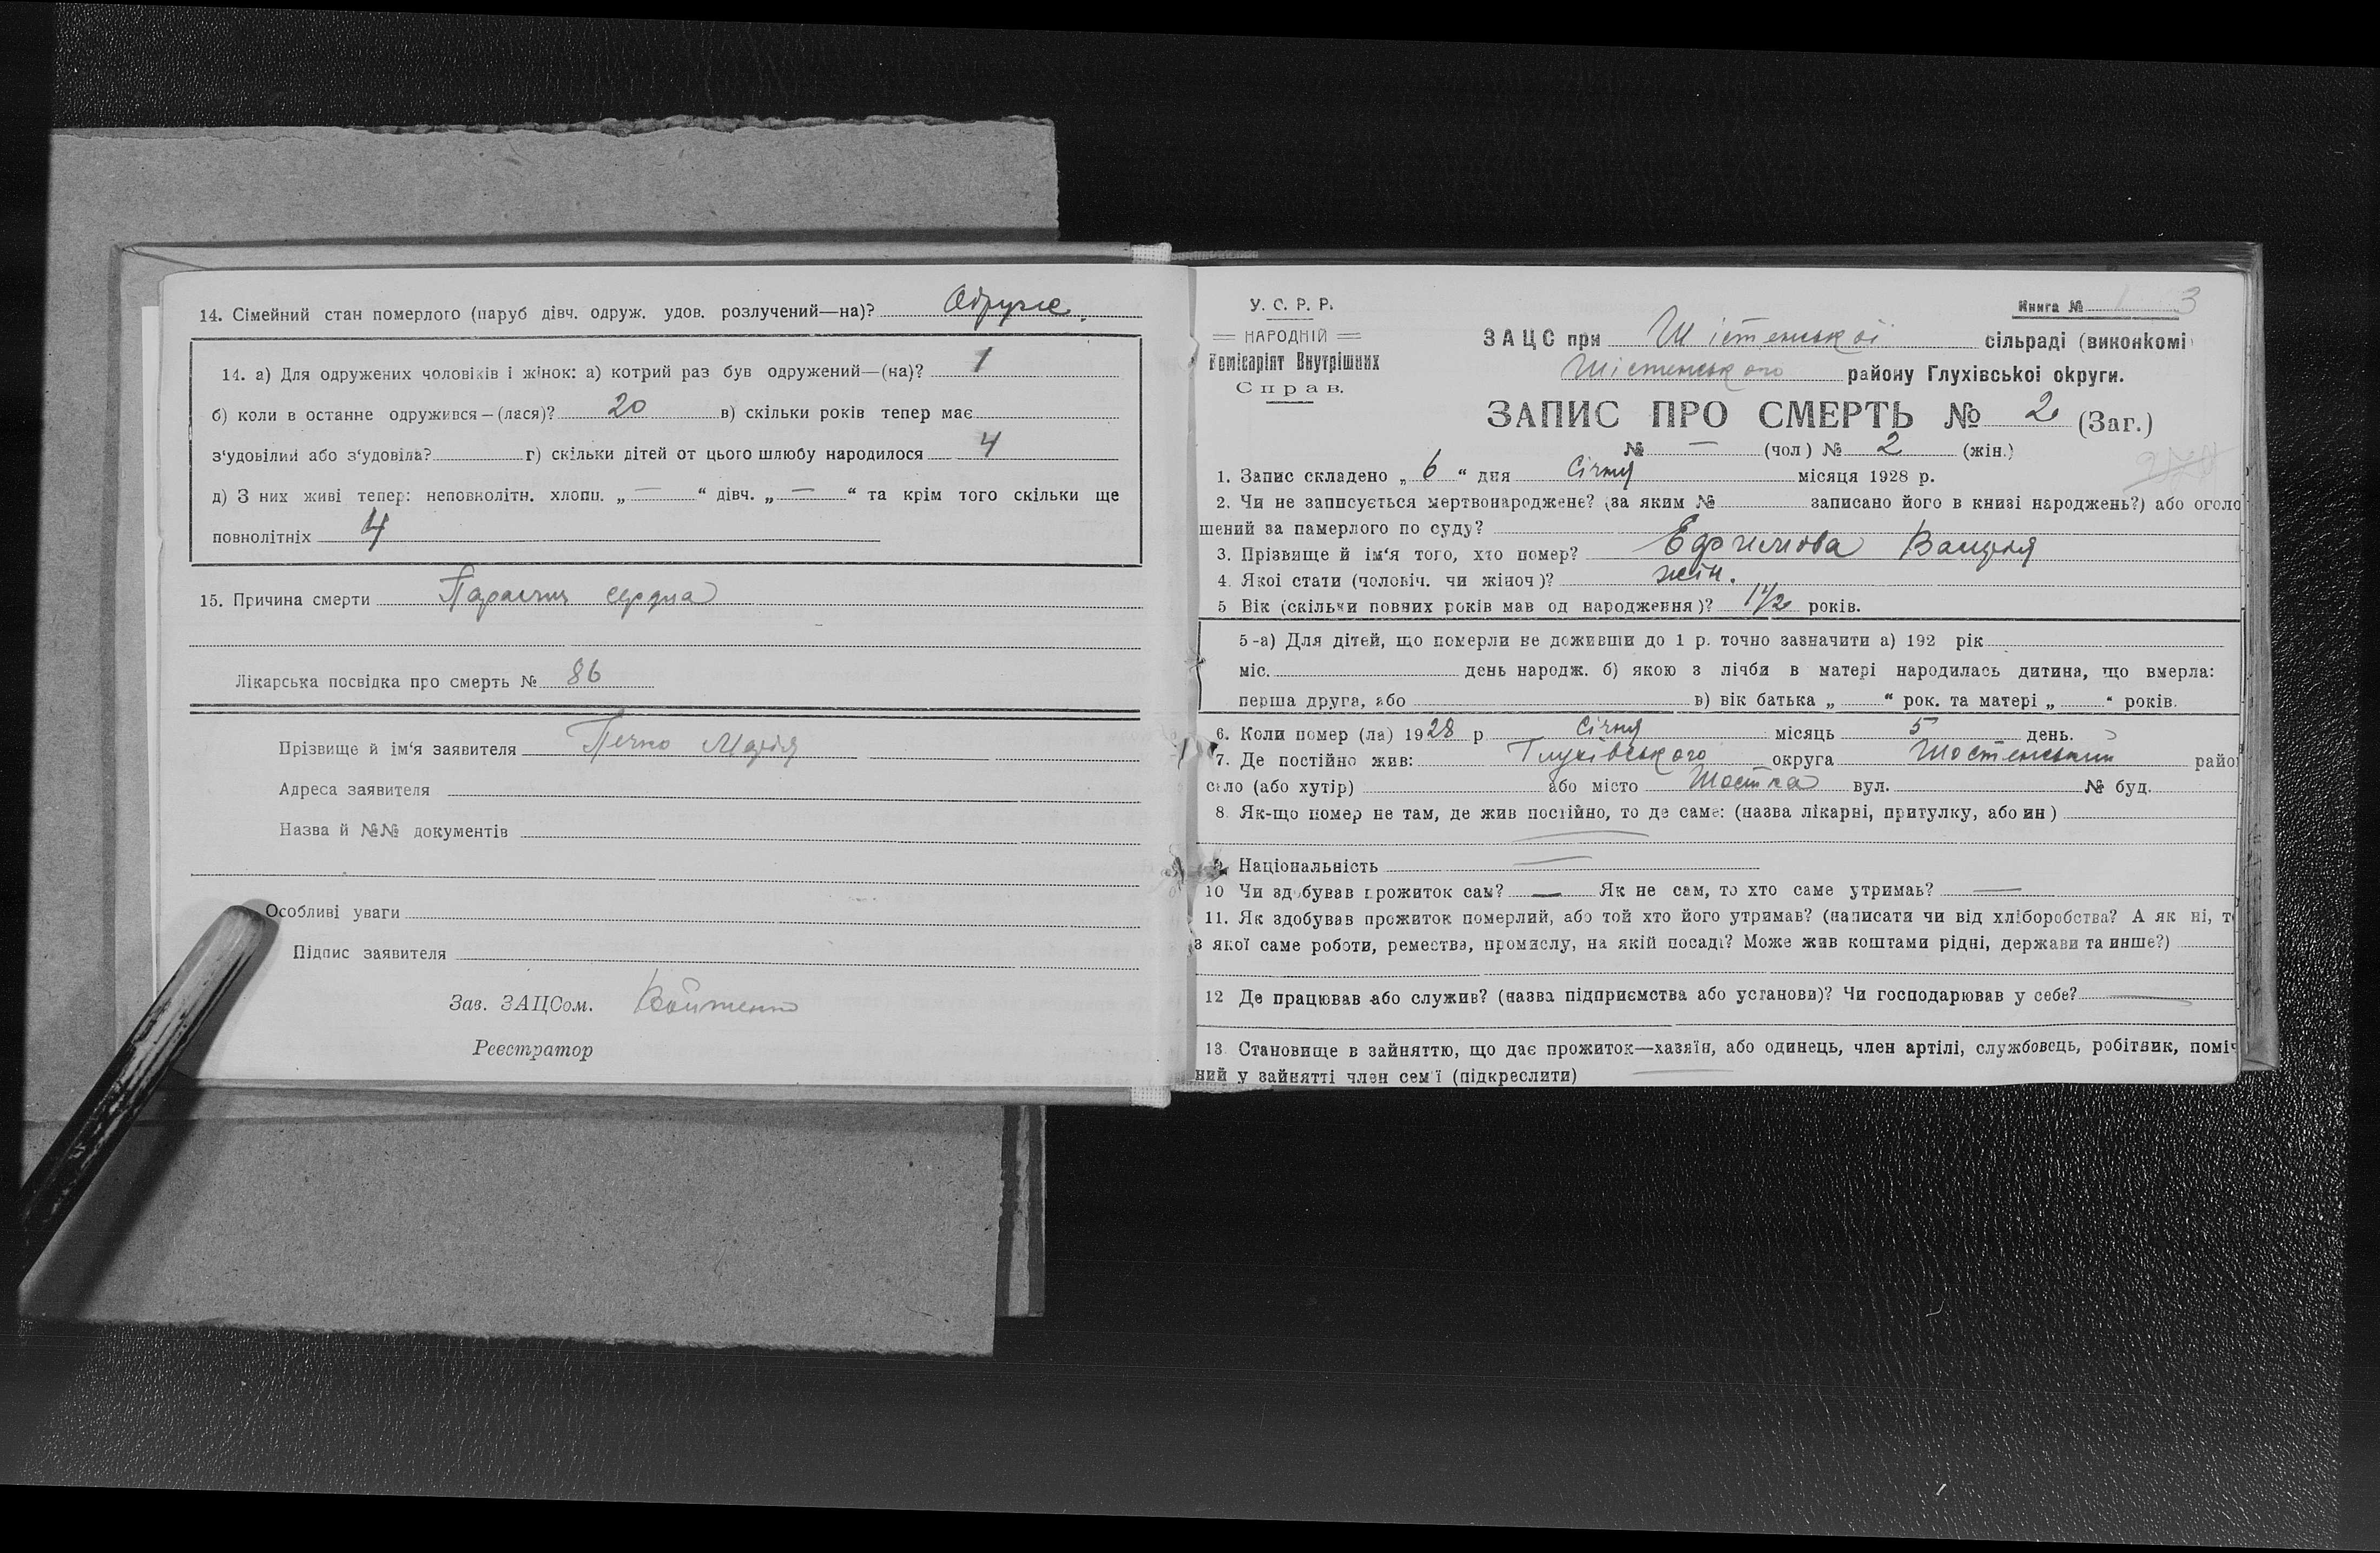 14. Сімейний стан померлого (паруб дівч. одруж. удов. розлучений—на)? Одруже.
14. а) Для одружених чоловіків і жінок: а) котрий раз був одружений—(на)? 1
б) коли в останне одружився—(лася)? 20 в) скільки років тепер має
з'удовілий або з'удовіла? г) скільки дітей от цього шлюбу народилося 4
д) З них живі тепер: неповнолітн. хлопц. „ — “ дівч. „ — “ та крім того скільки ще
повнолітніх 4
15. Причина смерти Паралич сердца
Лікарська посвідка про смерть № 86
Прізвище й ім'я заявителя Марія
Адреса заявителя
Назва й №№ документів
Особливі уваги
Підпис заявителя
Зав. ЗАЦСом.
Реєстратор
У. С. Р. Р.
НАРОДНІЙ
Комісаріят Внутрішних
Справ.
Книга № 3
ЗАЦС при Шістенської сільраді (виконкомі
Шістенського району Глухівської округи.
ЗАПИС ПРО СМЕРТЬ № 2 (Заг.)
№ — (чол) № 2 (жін.)
1. Запис складено „ 6 “ дня Січня місяця 1928 р.
2. Чи не записується мертвонароджене? (за яким № записано його в книзі народжень?) або оголо
шений за памерлого по суду?
3. Прізвище й ім'я того, хто помер? Ефимова
4. Якої стати (чоловіч. чи жіноч)? жін.
5 Вік (скільки повних років мав од народження)? 1 1/2 років.
5-а) Для дітей, що померли не доживши до 1 р. точно зазначити а) 192 рік
міс. день народж. б) якою з лічби в матері народилась дитина, що вмерла:
перша друга, або в) вік батька „ “ рок. та матері „ “ років.
6. Коли помер (ла) 1928 р Січня місяць 5 день.
7. Де постійно жив: Глухівського округа Шостенський райо
село (або хутір) або місто Шостка вул. № буд.
8. Як-що помер не там, де жив постійно, то де саме: (назва лікарні, притулку, або ин)
9. Національність
10 Чи здобував прожиток сам? — Як не сам, то хто саме утримав? —
11. Як здобував прожиток померлий, або той хто його утримав? (написати чи від хліборобства? А як ні, т
з якої саме роботи, ремества, промислу, на якій посаді? Може жив коштами рідні, держави та инше?)
12 Де працював або служив? (назва підприємства або установи)? Чи господарював у себе?
13 Становище в зайняттю, що дає прожиток—хазяїн, або одинець, член артілі, службовець, робітник, поміч
ний у зайнятті член сем'ї (підкреслити)